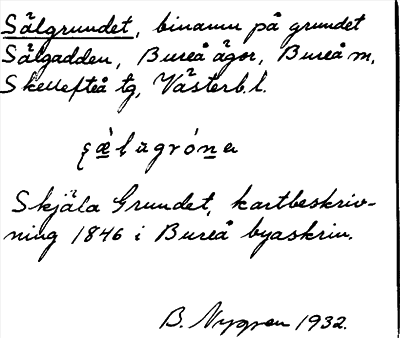 Sälgrundet, binamn på grundet
Sälgadden, Bureå ägor, Bureå m,
Skellefteå tg, Västerb.l.
Skjäla Grundet, kartbeskriv-
ning 1846 i Bureå byaskrin.
B. Nygren 1932.